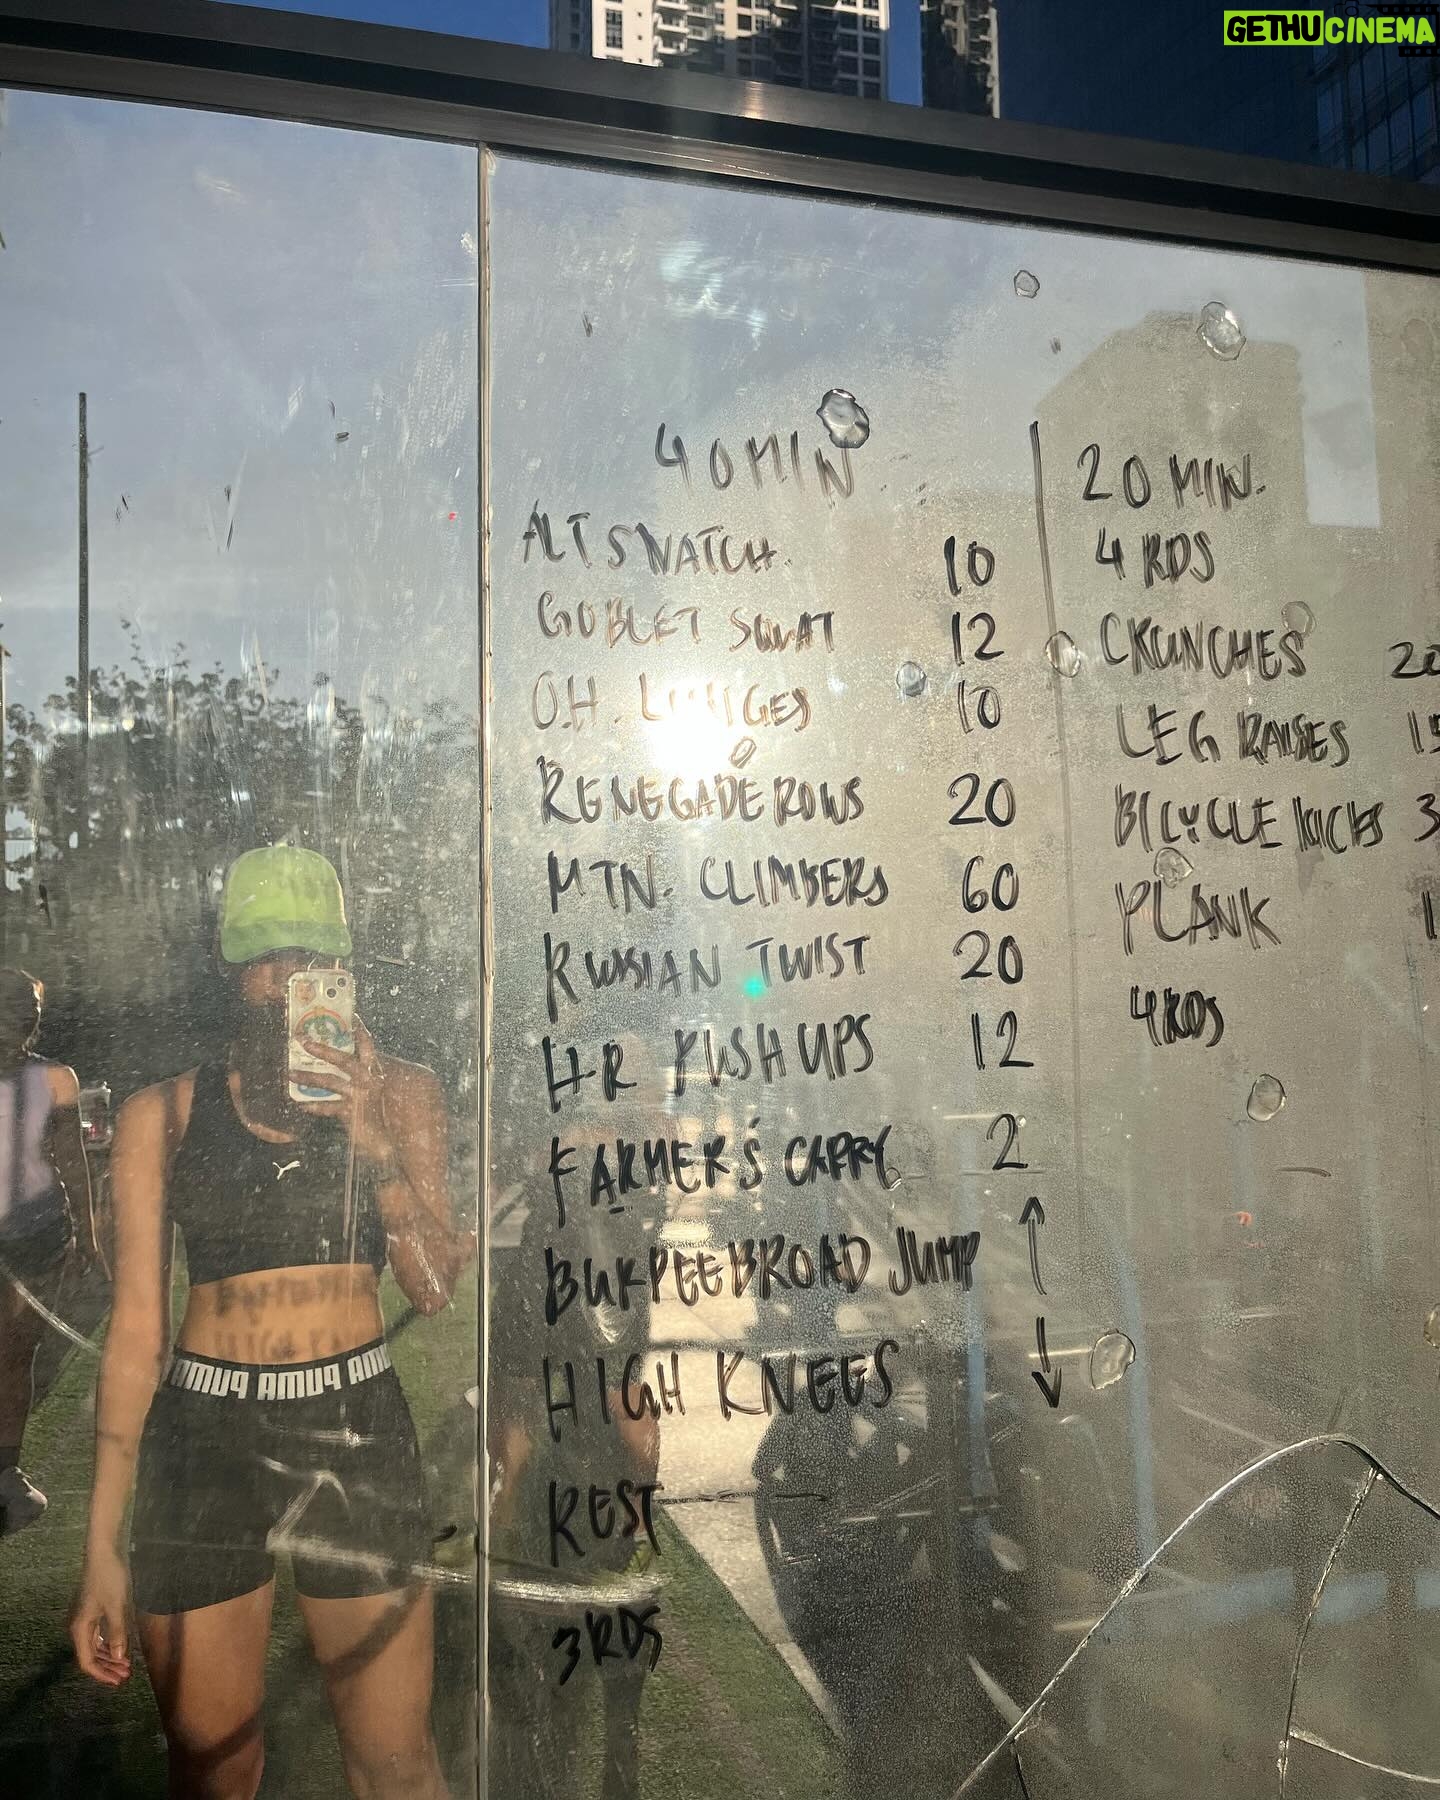 GETHUCINEMA
40 MIN
ALT SNATCH. 10
GOBLET SQUAT 12
O.H. LUNGES 10
RENEGADE ROWS 20
MTN. CLIMBERS 60
RUSSIAN TWIST 20
HR PUSH UPS 12
FARMER'S CARRY 2
BURPEE BROAD JUMP ↑
HIGH KNEES ↓
REST
3 RDS
20 MIN.
4 RDS
CRUNCHES 20
LEG RAISES 15
BICYCLE KICKS 3
PLANK 1
4 RDS
PUMA PUMA PUMA